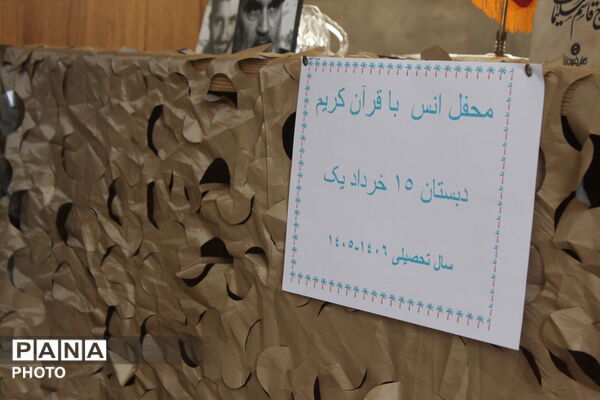 محفل انس با قرآن کریم
دبستان ۱۵ خرداد یک
سال تحصیلی ۱۴۰۶-۱۴۰۵
PANA
PHOTO